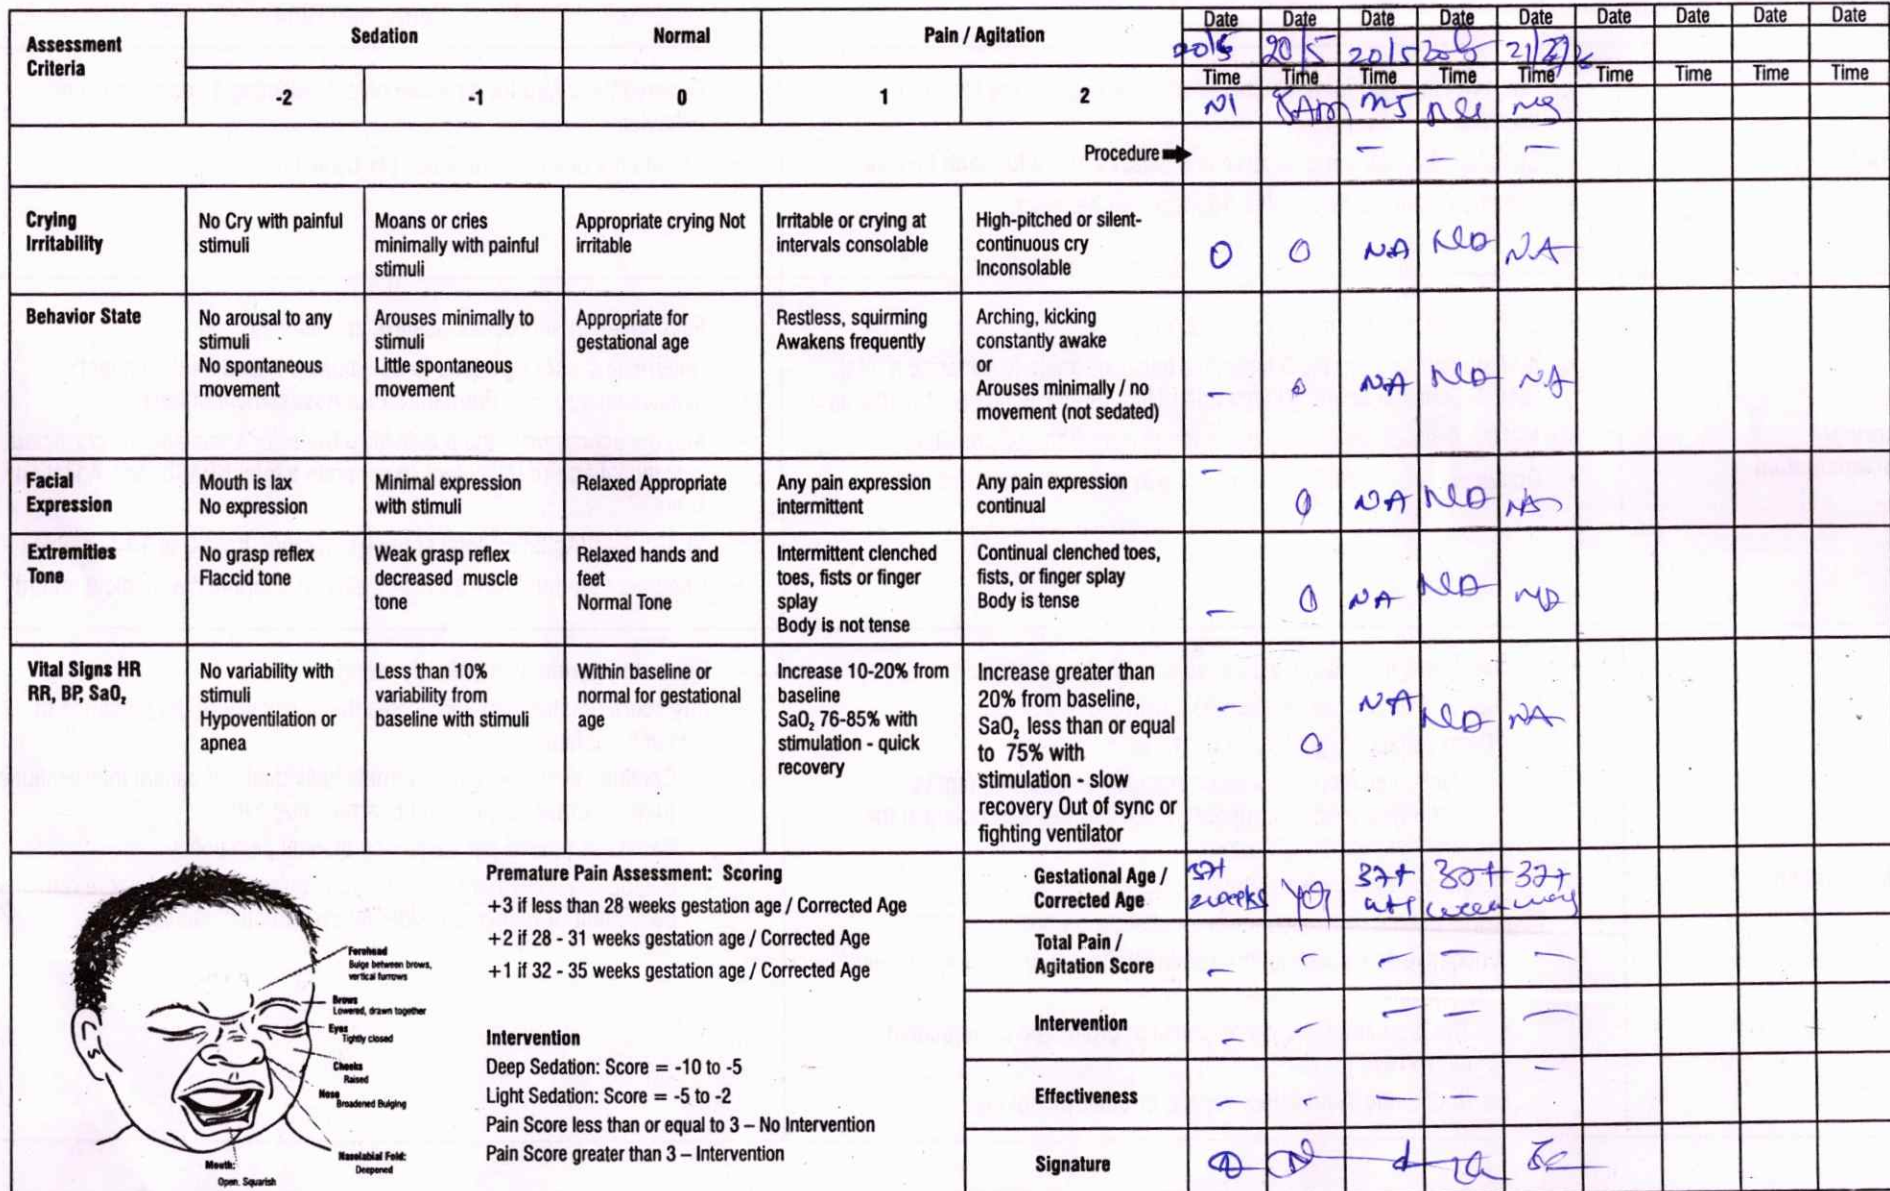 Assessment Criteria
Sedation
Normal
Pain / Agitation
-2
-1
0
1
2
Date Date Date Date Date Date Date Date Date
20/5 20/5 20/5
Time Time Time Time Time Time Time Time Time
N1 8AM
Procedure
— — —
Crying Irritability
No Cry with painful stimuli
Moans or cries minimally with painful stimuli
Appropriate crying Not irritable
Irritable or crying at intervals consolable
High-pitched or silent-continuous cry Inconsolable
0 0 NA NA
Behavior State
No arousal to any stimuli
No spontaneous movement
Arouses minimally to stimuli
Little spontaneous movement
Appropriate for gestational age
Restless, squirming
Awakens frequently
Arching, kicking constantly awake
or
Arouses minimally / no movement (not sedated)
- 0 NA NA
Facial Expression
Mouth is lax
No expression
Minimal expression with stimuli
Relaxed Appropriate
Any pain expression intermittent
Any pain expression continual
- 0 NA
Extremities Tone
No grasp reflex
Flaccid tone
Weak grasp reflex decreased muscle tone
Relaxed hands and feet
Normal Tone
Intermittent clenched toes, fists or finger splay
Body is not tense
Continual clenched toes, fists, or finger splay
Body is tense
- 0 NA
Vital Signs HR RR, BP, SaO₂
No variability with stimuli
Hypoventilation or apnea
Less than 10% variability from baseline with stimuli
Within baseline or normal for gestational age
Increase 10-20% from baseline
SaO₂ 76-85% with stimulation - quick recovery
Increase greater than 20% from baseline, SaO₂ less than or equal to 75% with stimulation - slow recovery Out of sync or fighting ventilator
- 0 NA NA
Forehead
Bulge between brows, vertical furrows
Brows
Lowered, drawn together
Eyes
Tightly closed
Cheeks
Raised
Nose
Broadened Bulging
Nasolabial Fold:
Deepened
Mouth:
Open. Squarish
Premature Pain Assessment: Scoring
+3 if less than 28 weeks gestation age / Corrected Age
+2 if 28 - 31 weeks gestation age / Corrected Age
+1 if 32 - 35 weeks gestation age / Corrected Age
Intervention
Deep Sedation: Score = -10 to -5
Light Sedation: Score = -5 to -2
Pain Score less than or equal to 3 – No Intervention
Pain Score greater than 3 – Intervention
Gestational Age / Corrected Age
37+ 37+ 37+
Total Pain / Agitation Score
- - - - -
Intervention
- - - - -
Effectiveness
- - - - -
Signature